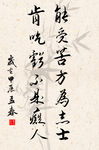 能受苦方為志士
肯吃虧不是癡人
歲在甲辰孟春